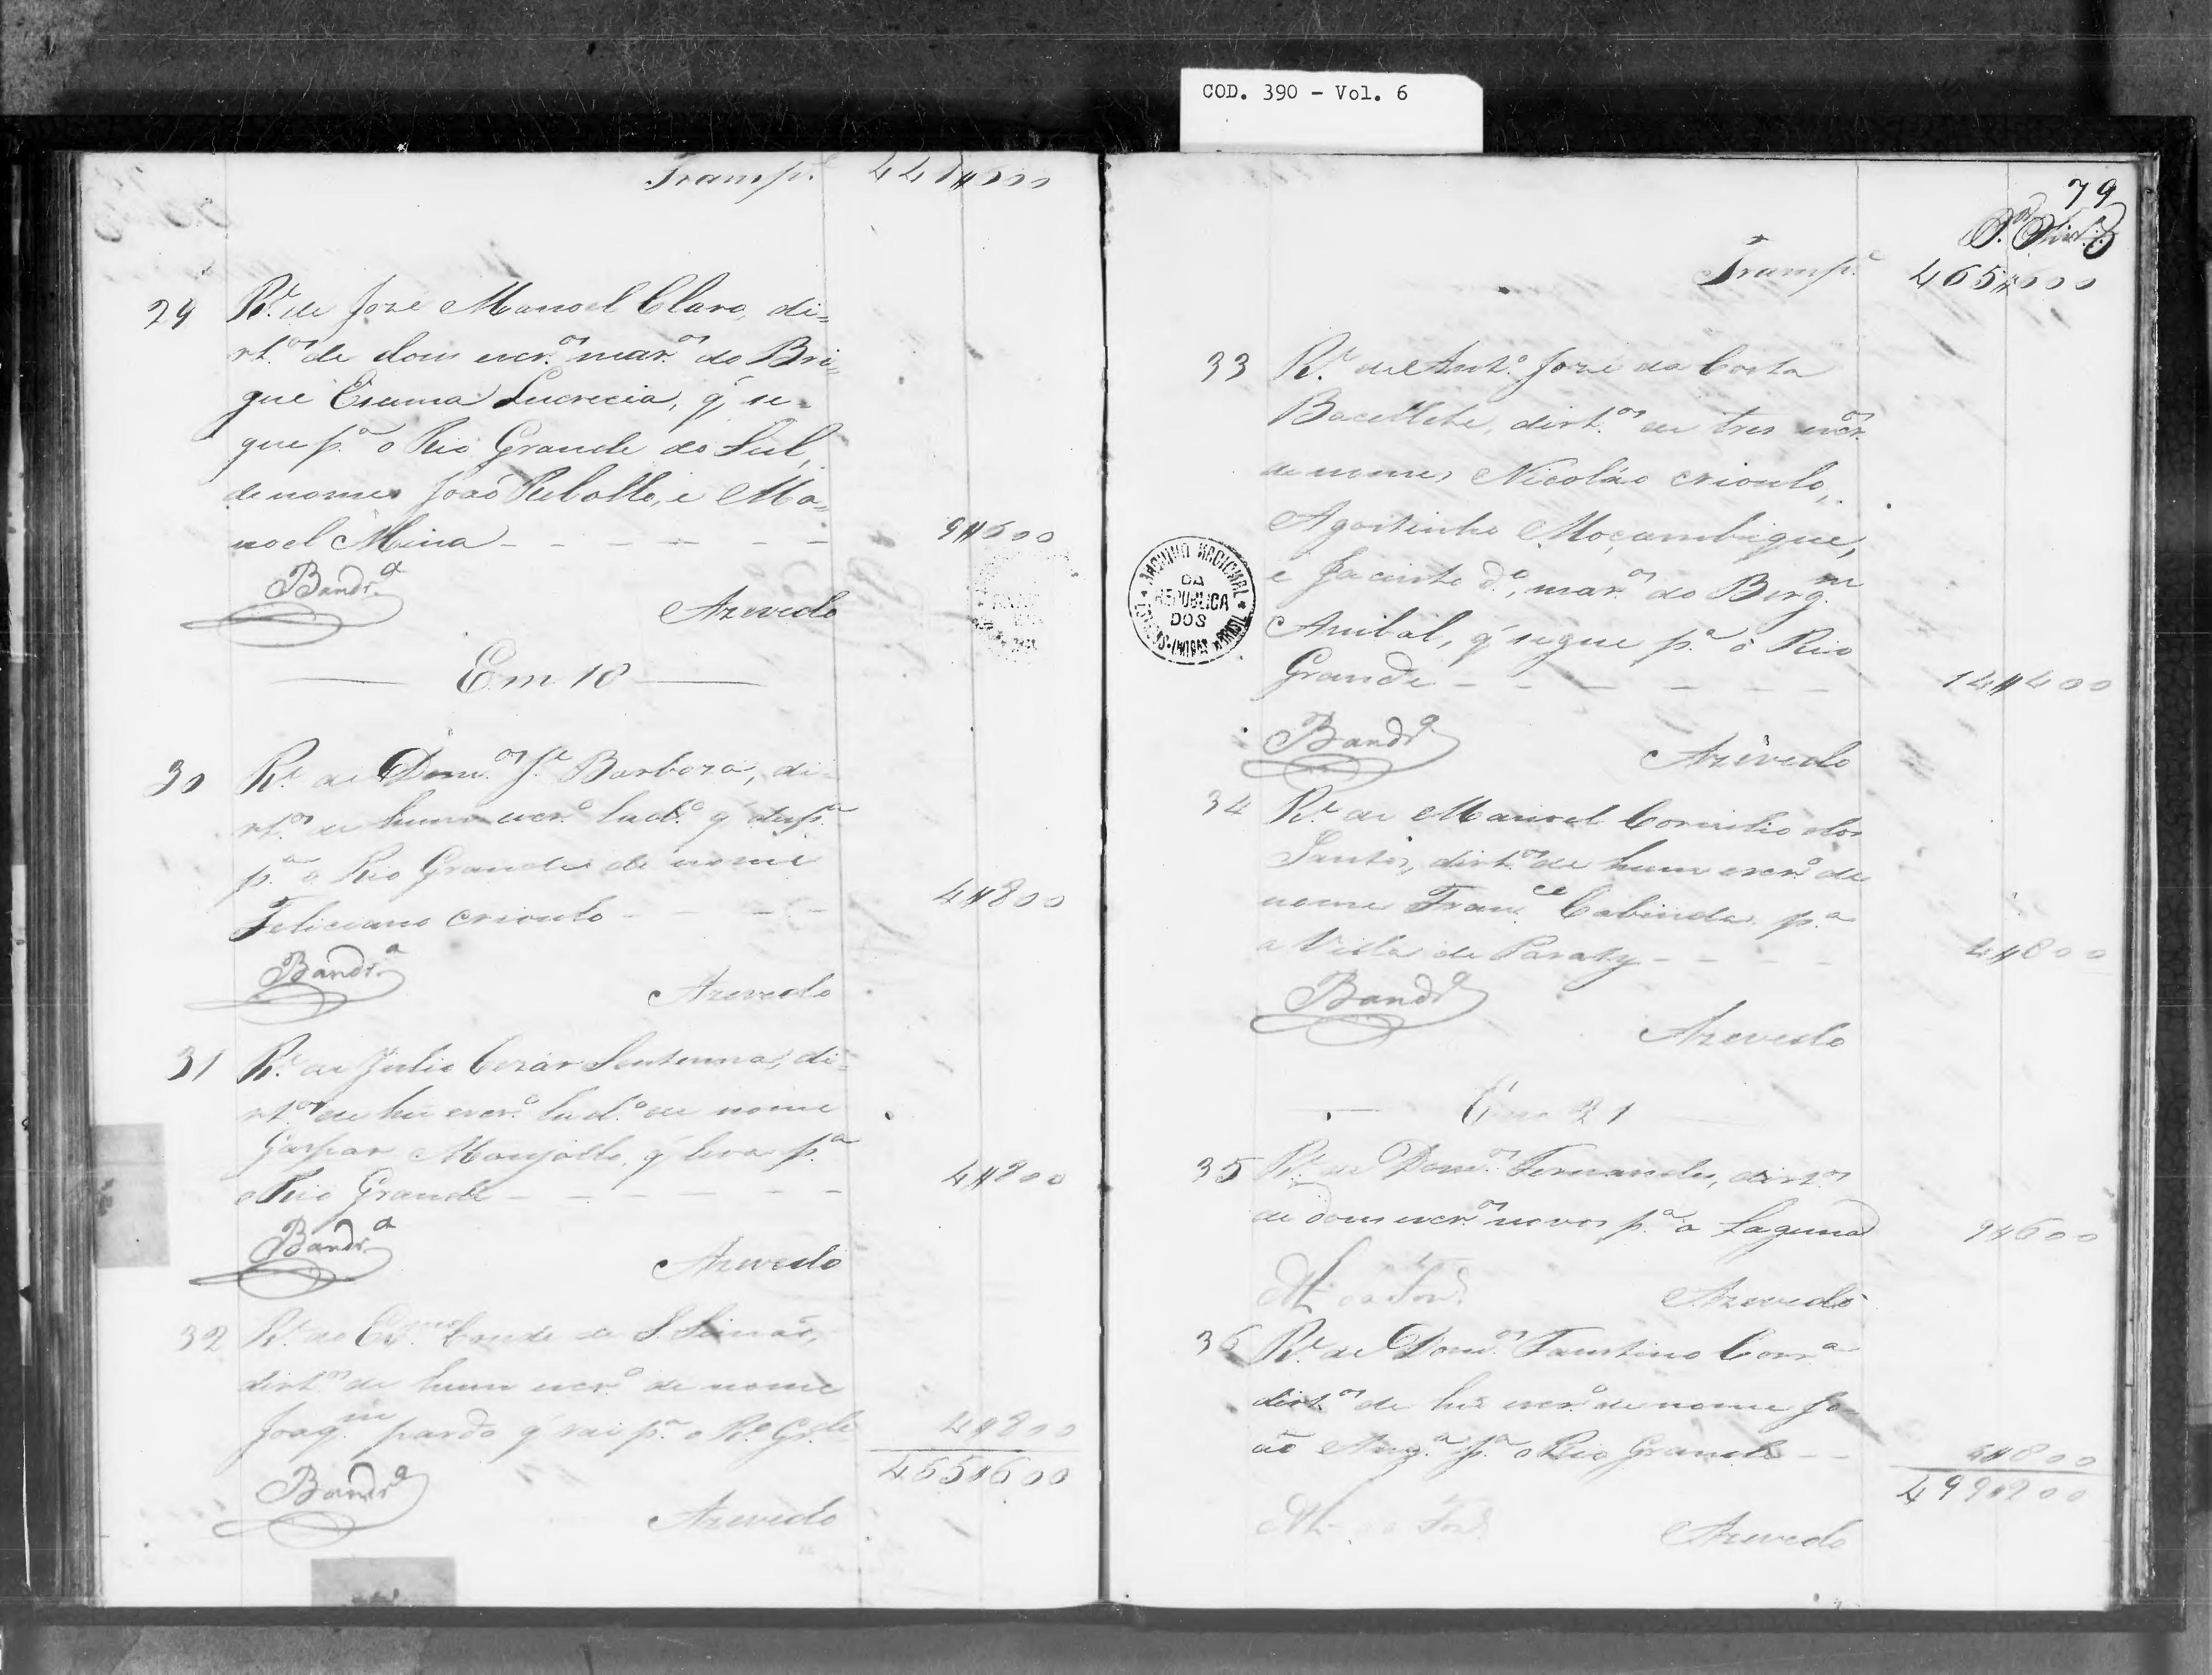 COD. 390 - Vol. 6
Transp.e 441#600
29 R.e de Jozé Manoel Claro, di=
rt.os de dous escr.os mar.os do Bri=
gue Lucrecia, q' se=
gue p.a o Rio Grande do Sul,
de nomes João Rebollo, e Ma=
noel Mina 9#600
Band.ra
Azevedo
Em 18
30 R.e de Dom.os J.e Barboza, di=
rt.os de hum escr.o lad.o q' desp.a
p.a o Rio Grande de nome
Feliciano crioulo 4#800
Band.ra
Azevedo
31 R.e de Julio Cezar, di=
rt.os de hu escr.o lad.o de nome
Gaspar Monjollo, q' leva p.a
o Rio Grande 4#800
Band.ra
Azevedo
32 R.e do Ex.mo Conde de S. Simão,
dirt.os de hum escr.o de nome
Joaq.m pardo q' vai p.a o R.o Gr.de 4#800
465#600
Band.ra
Azevedo
79
Transp.e 465#600
33 R.e de Ant.o Jozé da Costa
dirt.os de tres escr.os
de nomes Nicoláo crioulo,
Agostinho Moçambique,
e Jacinto d.o, mar.os do Berg.m
Anibal, q' segue p.a o Rio
Grande 14#400
ARCHIVO NACIONAL
DA
REPUBLICA
DOS
ESTADOS-UNIDOS DO BRASIL
Band.ra
Azevedo
34 R.e de Manoel Cornelio dos
Santos, dirt.os de hum escr.o de
nome Fran.co Cabinda p.a
a Villa de Paraty 4#800
Band.ra
Azevedo
Em 21
35 R.e de Dom.os Fernandes, dirt.os
de dous escr.os novos p.a a Laguna 9#600
Azevedo
36 R.e de Dom.os Faustino Corr.a
dirt.os de hu escr.o de nome Jo=
ão Ang.a p.a o Rio Grande 4#800
499#200
Azevedo